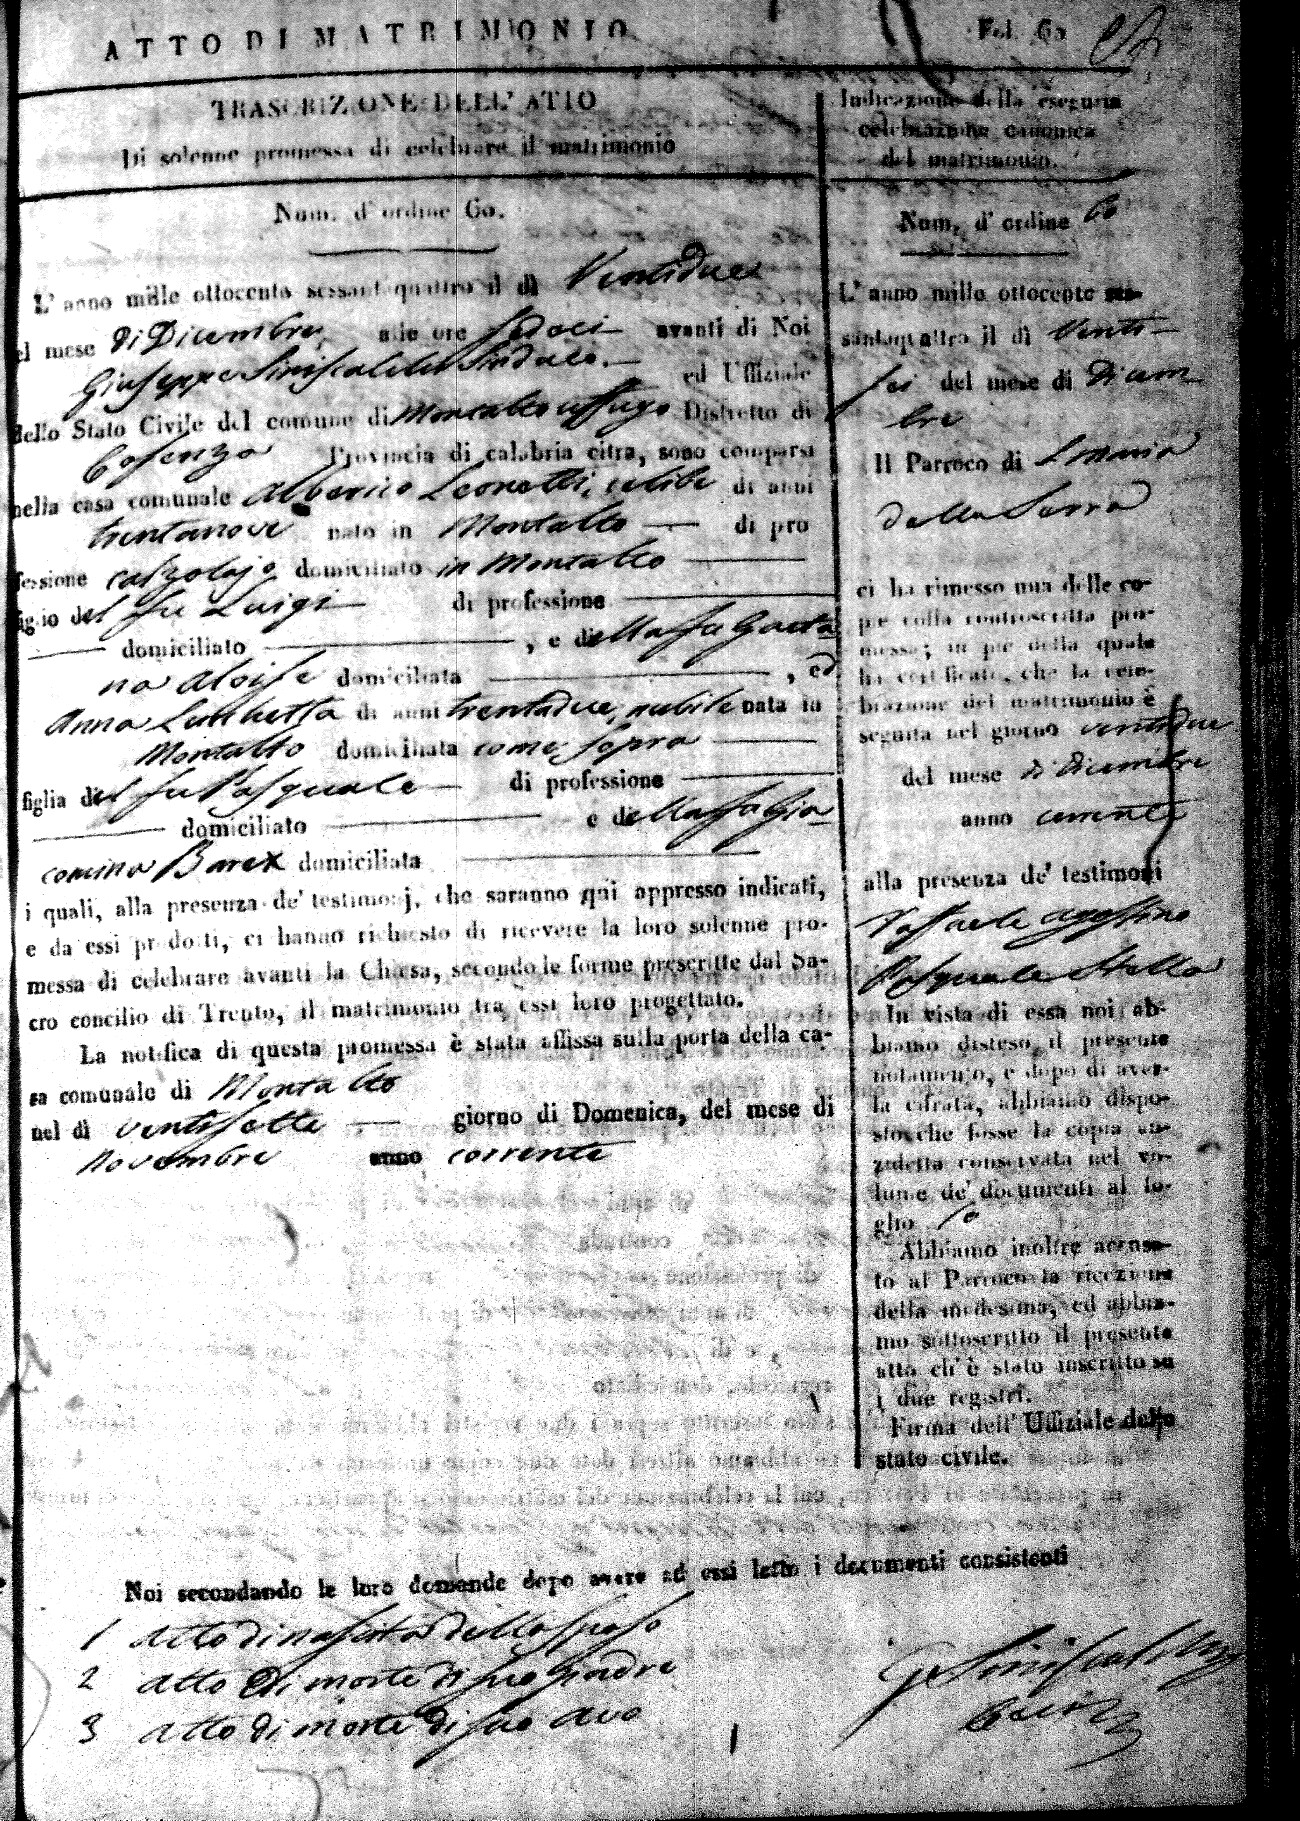 ATTO DI MATRIMONIO
Fol. 60
TRASCRIZIONE DELL' ATTO
Di solenne promessa di celebrare il matrimonio
Num. d' ordine 60.
L' anno mille ottocento sessantaquattro il dì Ventidue
el mese di Dicembre, alle ore sedeci avanti di Noi
Giuseppe Siniscalchi Sindaco. ed Uffiziale
dello Stato Civile del comune di Montalto uffugo Distretto di
Cosenza Provincia di calabria citra, sono comparsi
nella casa comunale Alberico Leonetti, celibe di anni
trentanove nato in Montalto di pro
fessione calzolajo domiciliato in Montalto
figlio del fu Luigi di professione
domiciliato , e della fu Gaeta
na Aloise domiciliata , ed
Anna di anni trentadue, nubile nata in
Montalto domiciliata come sopra
figlia del fu Pasquale di professione
domiciliato e della fu Gia
comina domiciliata
i quali, alla presenza de' testimonj, che saranno qui appresso indicati,
e da essi prodotti, ci hanno richiesto di ricevere la loro solenne pro-
messa di celebrare avanti la Chiesa, secondo le forme prescritte dal Sa-
cro concilio di Trento, il matrimonio tra essi loro progettato.
La notifica di questa promessa è stata affissa sulla porta della ca-
sa comunale di Montalto
nel dì ventisette giorno di Domenica, del mese di
Novembre anno corrente
Indicazione della eseguita
celebrazione canonica
del matrimonio.
Num. d' ordine 60
L' anno mille ottocento ses-
santaquattro il dì Venti-
sei del mese di Dicem
bre
Il Parroco di
della Serra
ci ha rimesso una delle co-
pie colla controscritta pro-
messa; in piè della quale
ha certificato, che la cele-
brazione del matrimonio è
seguita nel giorno ventidue
del mese di Dicembre
anno corrente
alla presenza de' testimoni
Raffaele Agostino
Pasquale Stella
In vista di essa noi ab-
biamo disteso il presente
notamento, e dopo di aver-
la cifrata, abbiamo dispo-
sto che fosse la copia an-
zidetta conservata nel vo-
lume de' documenti al fo-
glio
Abbiamo inoltre accusa-
to al Parroco la ricezione
della medesima, ed abbia-
mo sottoscritto il presente
atto ch' è stato inscritto su
i due registri.
Firma dell' Uffiziale dello
stato civile.
Noi secondando le loro domande dopo avere ad essi letto i documenti consistenti
1 Atto di nascita dello sposo
2 Atto di morte di suo Padre
3 Atto di morte di suo Avo